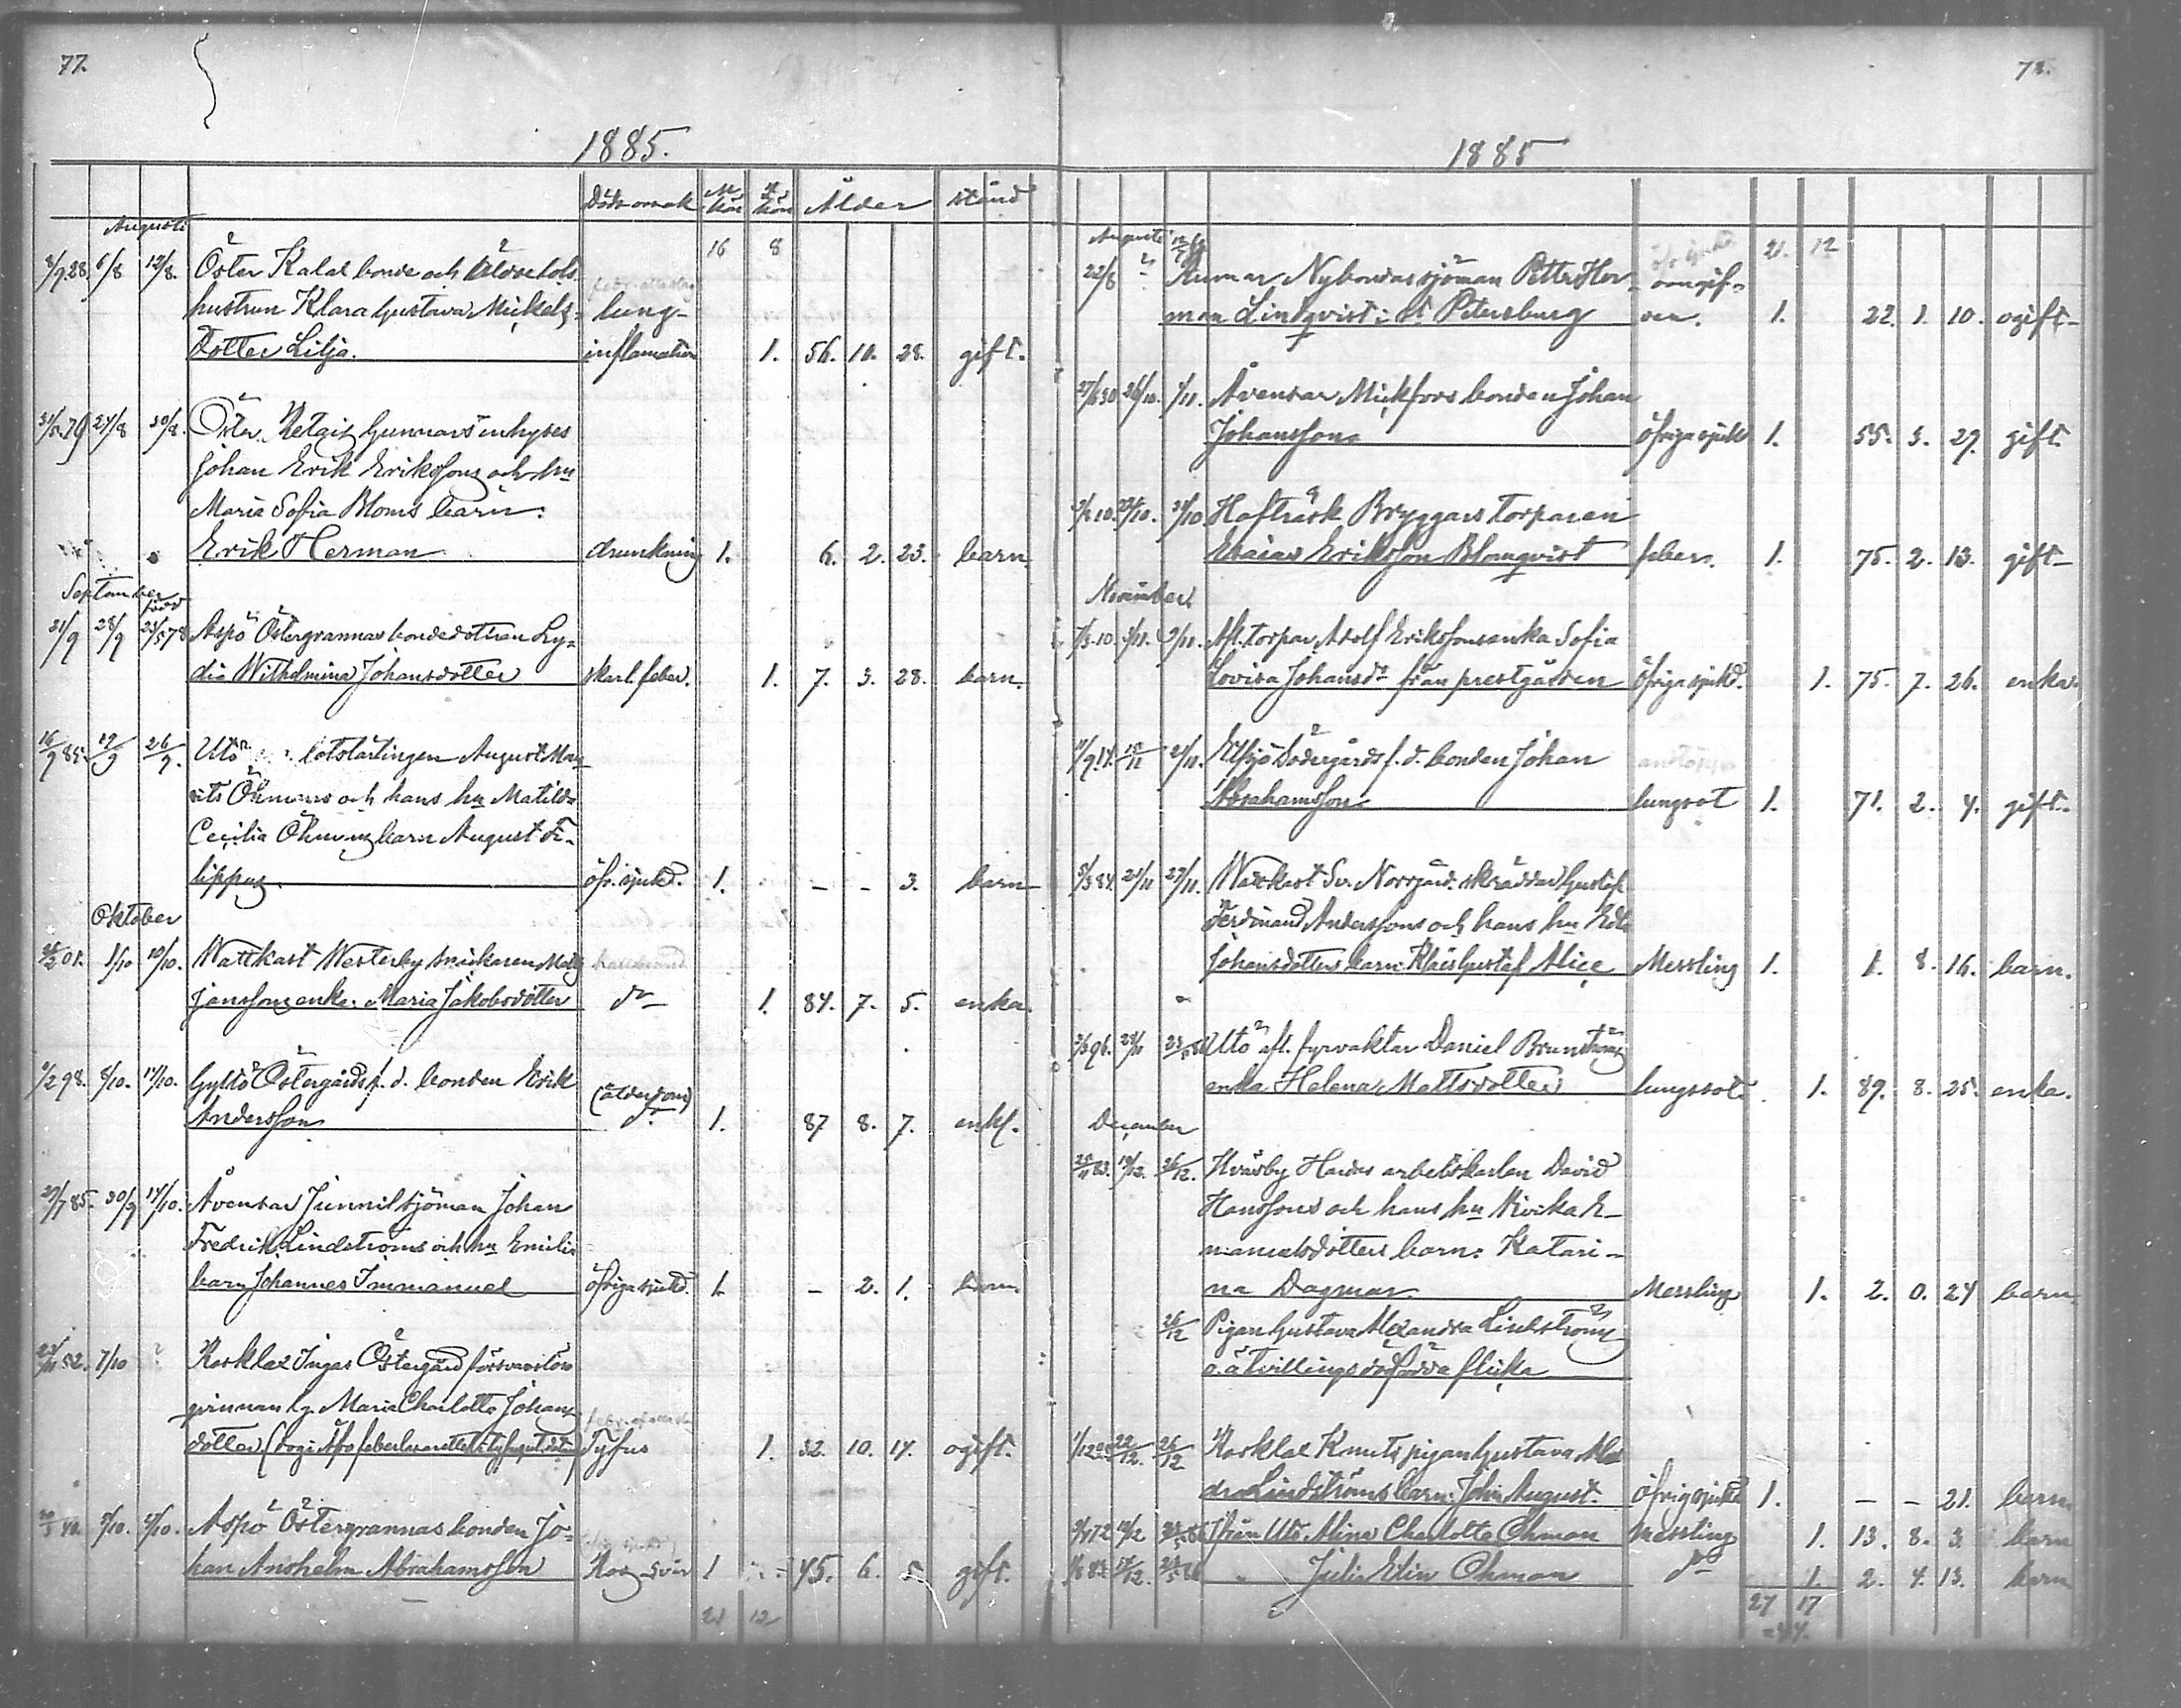 77.
1885.
Dödsorsak M. kön Q. kön Ålder stånd
Augusti
16 8
8/9.28. 6/8 12/8. Öster Kalax bonde och
hustrun Klara Gustava Mickels- lung-
dotter Lilja. inflamation 1. 56. 10. 28. gift.
31/5.79 24/8 30/8. Öster Retais Gunnars inhyses
Johan Erik Erikssons och hu
Maria Sofia Bloms barn:
Erik Herman drunkning 1. 6. 2. 23. barn.
September
född
21/9 28/9 23/5 78 Aspö Östergrannas bondedottren Ly-
dia Wilhelmina Johansdotter skarl. feber. 1. 7. 3. 28. barn.
16/9 85. 19/9 26/9. Utö lotslärlingen August Mau-
rits Öhmans och hans hu Matilda
Cecilia Öhmans barn August Fi-
lippus. öfr. sjukd. 1. – – 3. barn
Oktober
01. 1/10 10/10. Wattkast Westerby snickaren Matts
Janssons enka. Maria Jakobsdotter do 1. 84. 7. 5. enka.
1/2 98. 8/10. 17/10. Gyltö Östergårds f. d. bonden Erik (ålderdom)
Andersson do. 1. 87 8. 7. enkl.
29/7 85. 30/9 14/10. Åvensar Junnil sjöman Johan
Fredrik Lindströms och hu Emilia
barn Johannes Immanuel öfriga sjukd. 1. – 2. 1. barn.
52. 7/10 ? Korklax Ingas Östergård försvarslösa
qvinnan lg. Maria Charlotta Johans-
dotter (dog i Åbo Tyfus 1. 32. 10. 14. ogift.
40. 5/10. Aspö Östergrannas bonden Jo-
han Anshelm Abrahamsson 1 45. 6. 5 gift.
21 12
78.
1885
Augusti 21. 12
22/6 Rumar Nybondas sjöman Petter Her-
man Lindqvist i St. Petersburg 1. 22. 1. 10. ogift
27/4 30 26/10. 1/11. Åvensar Mickfors bonden Johan
Johansson öfriga sjukd 1. 55. 5. 29. gift.
Hafträsk Bryggars torparen
Esaias Eriksson Blomqvist feber. 1. 75. 2. 13. gift
November.
7/3.10. 3/11. 9/11. Afl. torpar. Adolf Erikssons enka Sofia
Lovisa Johansdr från prestgården Öfriga sjukd. 1. 75. 7. 26. enka.
21/11. Elfsjö Södergårds f. d. bonden Johan
Abrahamsson lungsot 1. 71. 2. 4. gift.
5/3 84. 21/11 27/11. Wattkast Sr. Norrgård skräddar Gustaf
Ferdinand Anderssons och hans hu Edla
Johansdotters barn: Kläes Gustaf Alice Messling 1. 1. 8. 16. barn.
96. Utö afl. fyrvaktar Daniel Brunströms
enka Helena Mattsdotter lungsot. 1. 89. 8. 25. enka.
December
25/11 83. 19/12. 26/12. Kväsby Hardes arbetskarlen David
Hanssons och hans hu Vivika E-
manuelsdotters barn: Katari-
na Dagmar Messling 1. 2. 0. 24 barn.
26/12 Pigan Gustava Alexandra Lindströms
o. ä. tvillings dödfödda flicka
1/12 22/12. 26/12 Korklax Knuts pigan Gustava
Lindströms barn: John August. Öfrig sjukd 1. – – 21. barn.
Från Utö Alina Charlotta Öhman Messling 1. 13. 8. 3. barn
" Julia Elin Öhman do 1. 2. 4. 13. barn
27 17
=44.